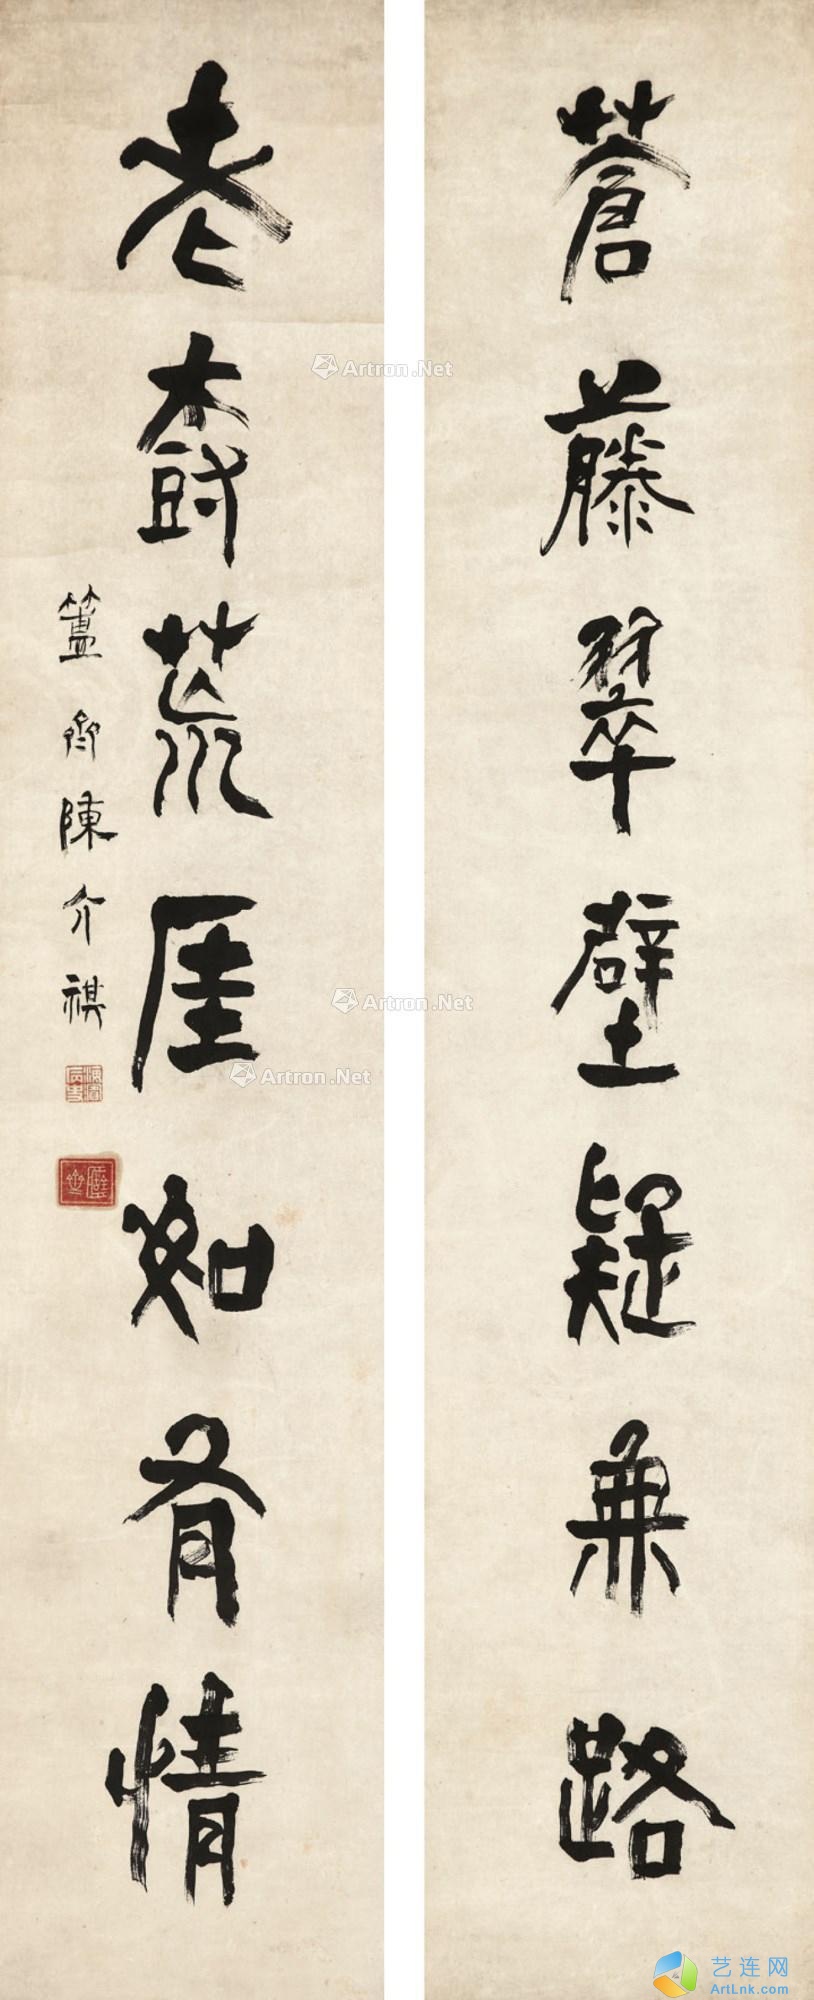 蒼藤翠壁疑無路
老樹荒厓如有情
簠齋陳介祺
海濱病史
Artron.Net
Artron.Net
Artron.Net
艺连网
ArtLnk.com